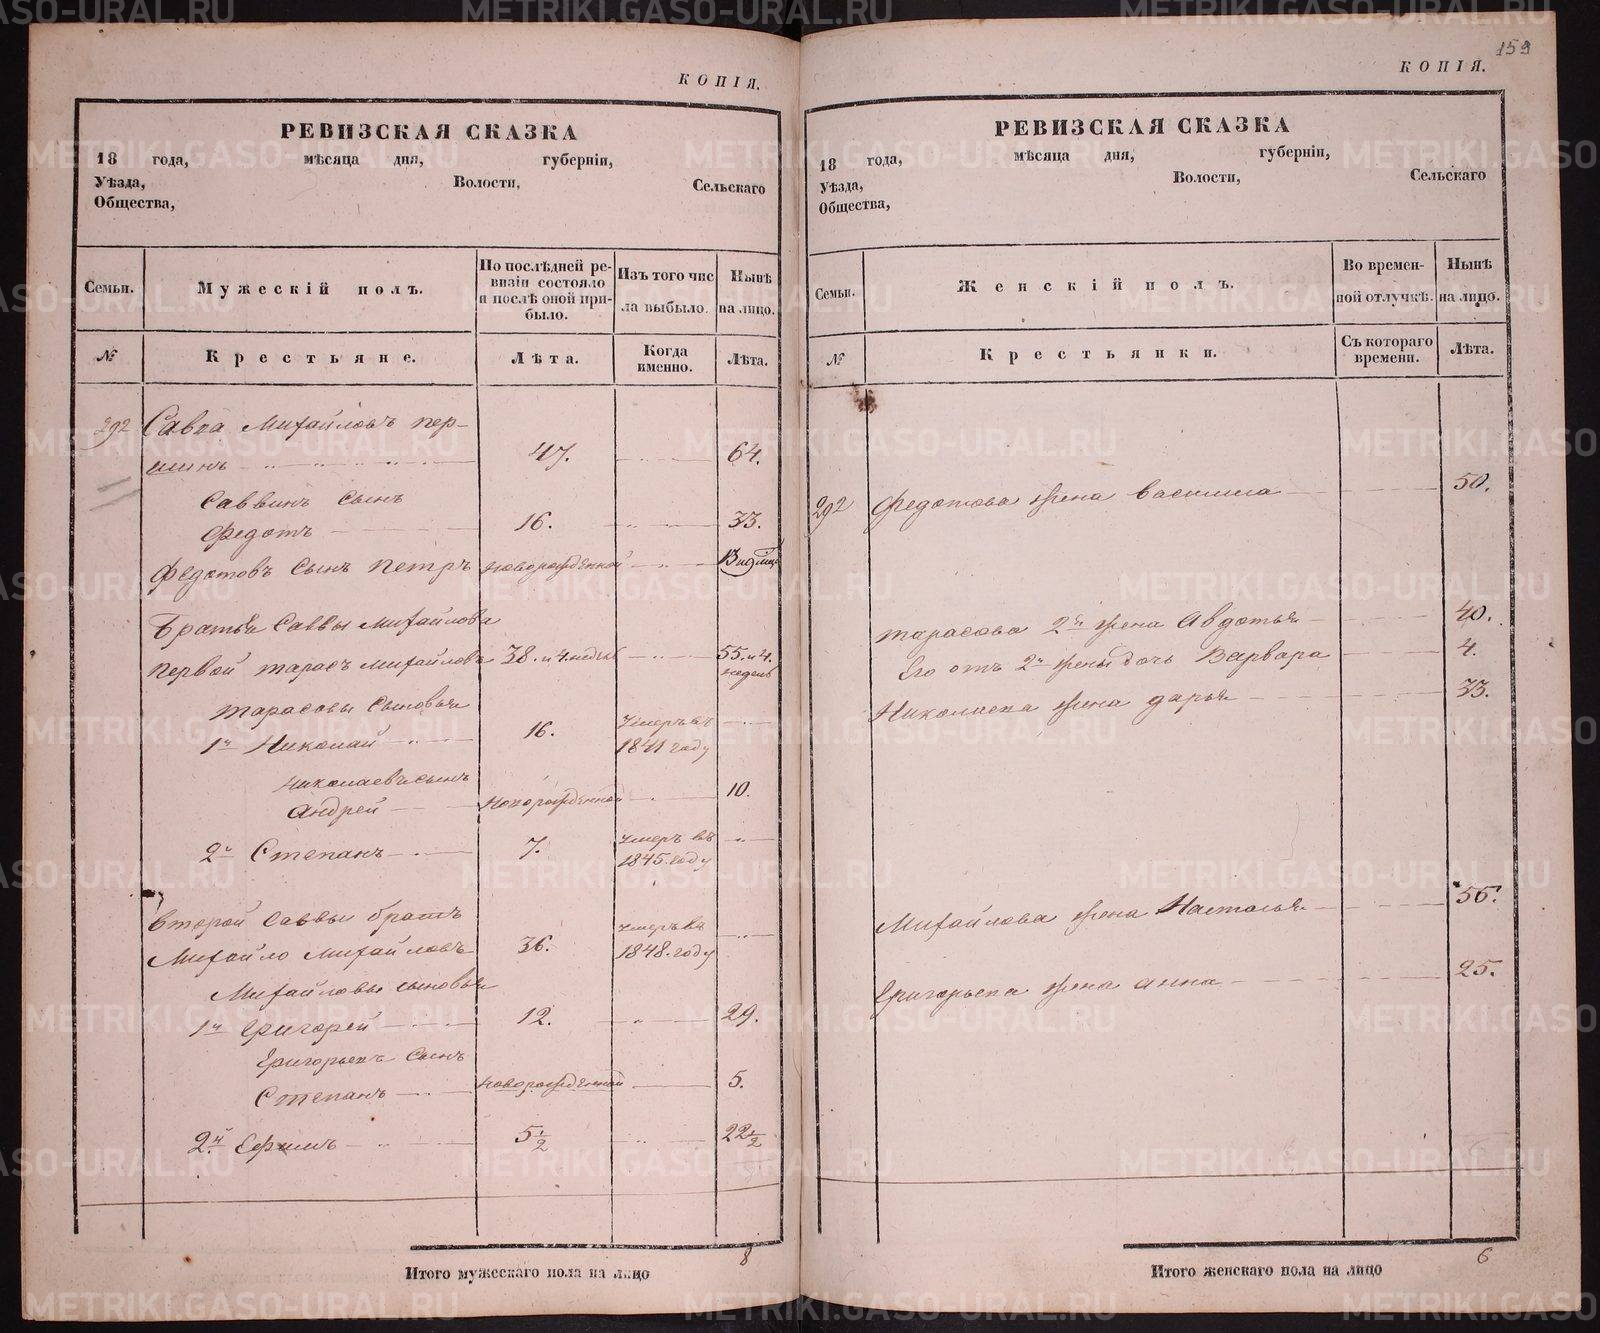 КОПІЯ.
РЕВИЗСКАЯ СКАЗКА
18 года, мѣсяца дня, губерніи,
Уѣзда, Волости, Сельскаго
Общества,
Семьи. Мужескій полъ. По послѣдней ревизіи состояло и послѣ оной прибыло. Изъ того числа выбыло. Нынѣ на лицо.
№ Крестьяне. Лѣта. Когда именно. Лѣта.
292 Савва Михайловъ пер-
шинъ 47. 64.
Саввинъ сынъ
Федотъ 16. 33.
Федотовъ сынъ Петръ новорожденной
Братья Саввы Михайлова
первой Тарасъ Михайловъ 38. и 4. недель 55. и 4. недель
Тарасовы сыновья
1й Николай 16. умеръ въ 1841 году
Николаевъ сынъ
Андрей новорожденной 10.
2й Степанъ 7. умеръ въ 1845. году
Второй Саввы братъ
Михайло Михайловъ 36. умеръ въ 1848. году
Михайловы сыновья
1й Григорей 12. 29.
Григорьевъ сынъ
Степанъ новорожденной 5.
2й Ефимъ 5½ 22½
8
Итого мужескаго пола на лицо
159
КОПІЯ.
РЕВИЗСКАЯ СКАЗКА
18 года, мѣсяца дня, губерніи,
Уѣзда, Волости, Сельскаго
Общества,
Семьи. Женскій полъ. Во временной отлучкѣ. Нынѣ на лицо.
№ Крестьянки. Съ котораго времени. Лѣта.
292 Федотова жена Василиса 50.
Тарасова 2я жена Авдотья 40.
Его отъ 2й жены дочь Варвара 4.
Николаева жена Дарья 33.
Михайлова жена Насталья 56.
Григорьева жена Анна 25.
6
Итого женскаго пола на лицо
METRIKI.GASO-URAL.RU